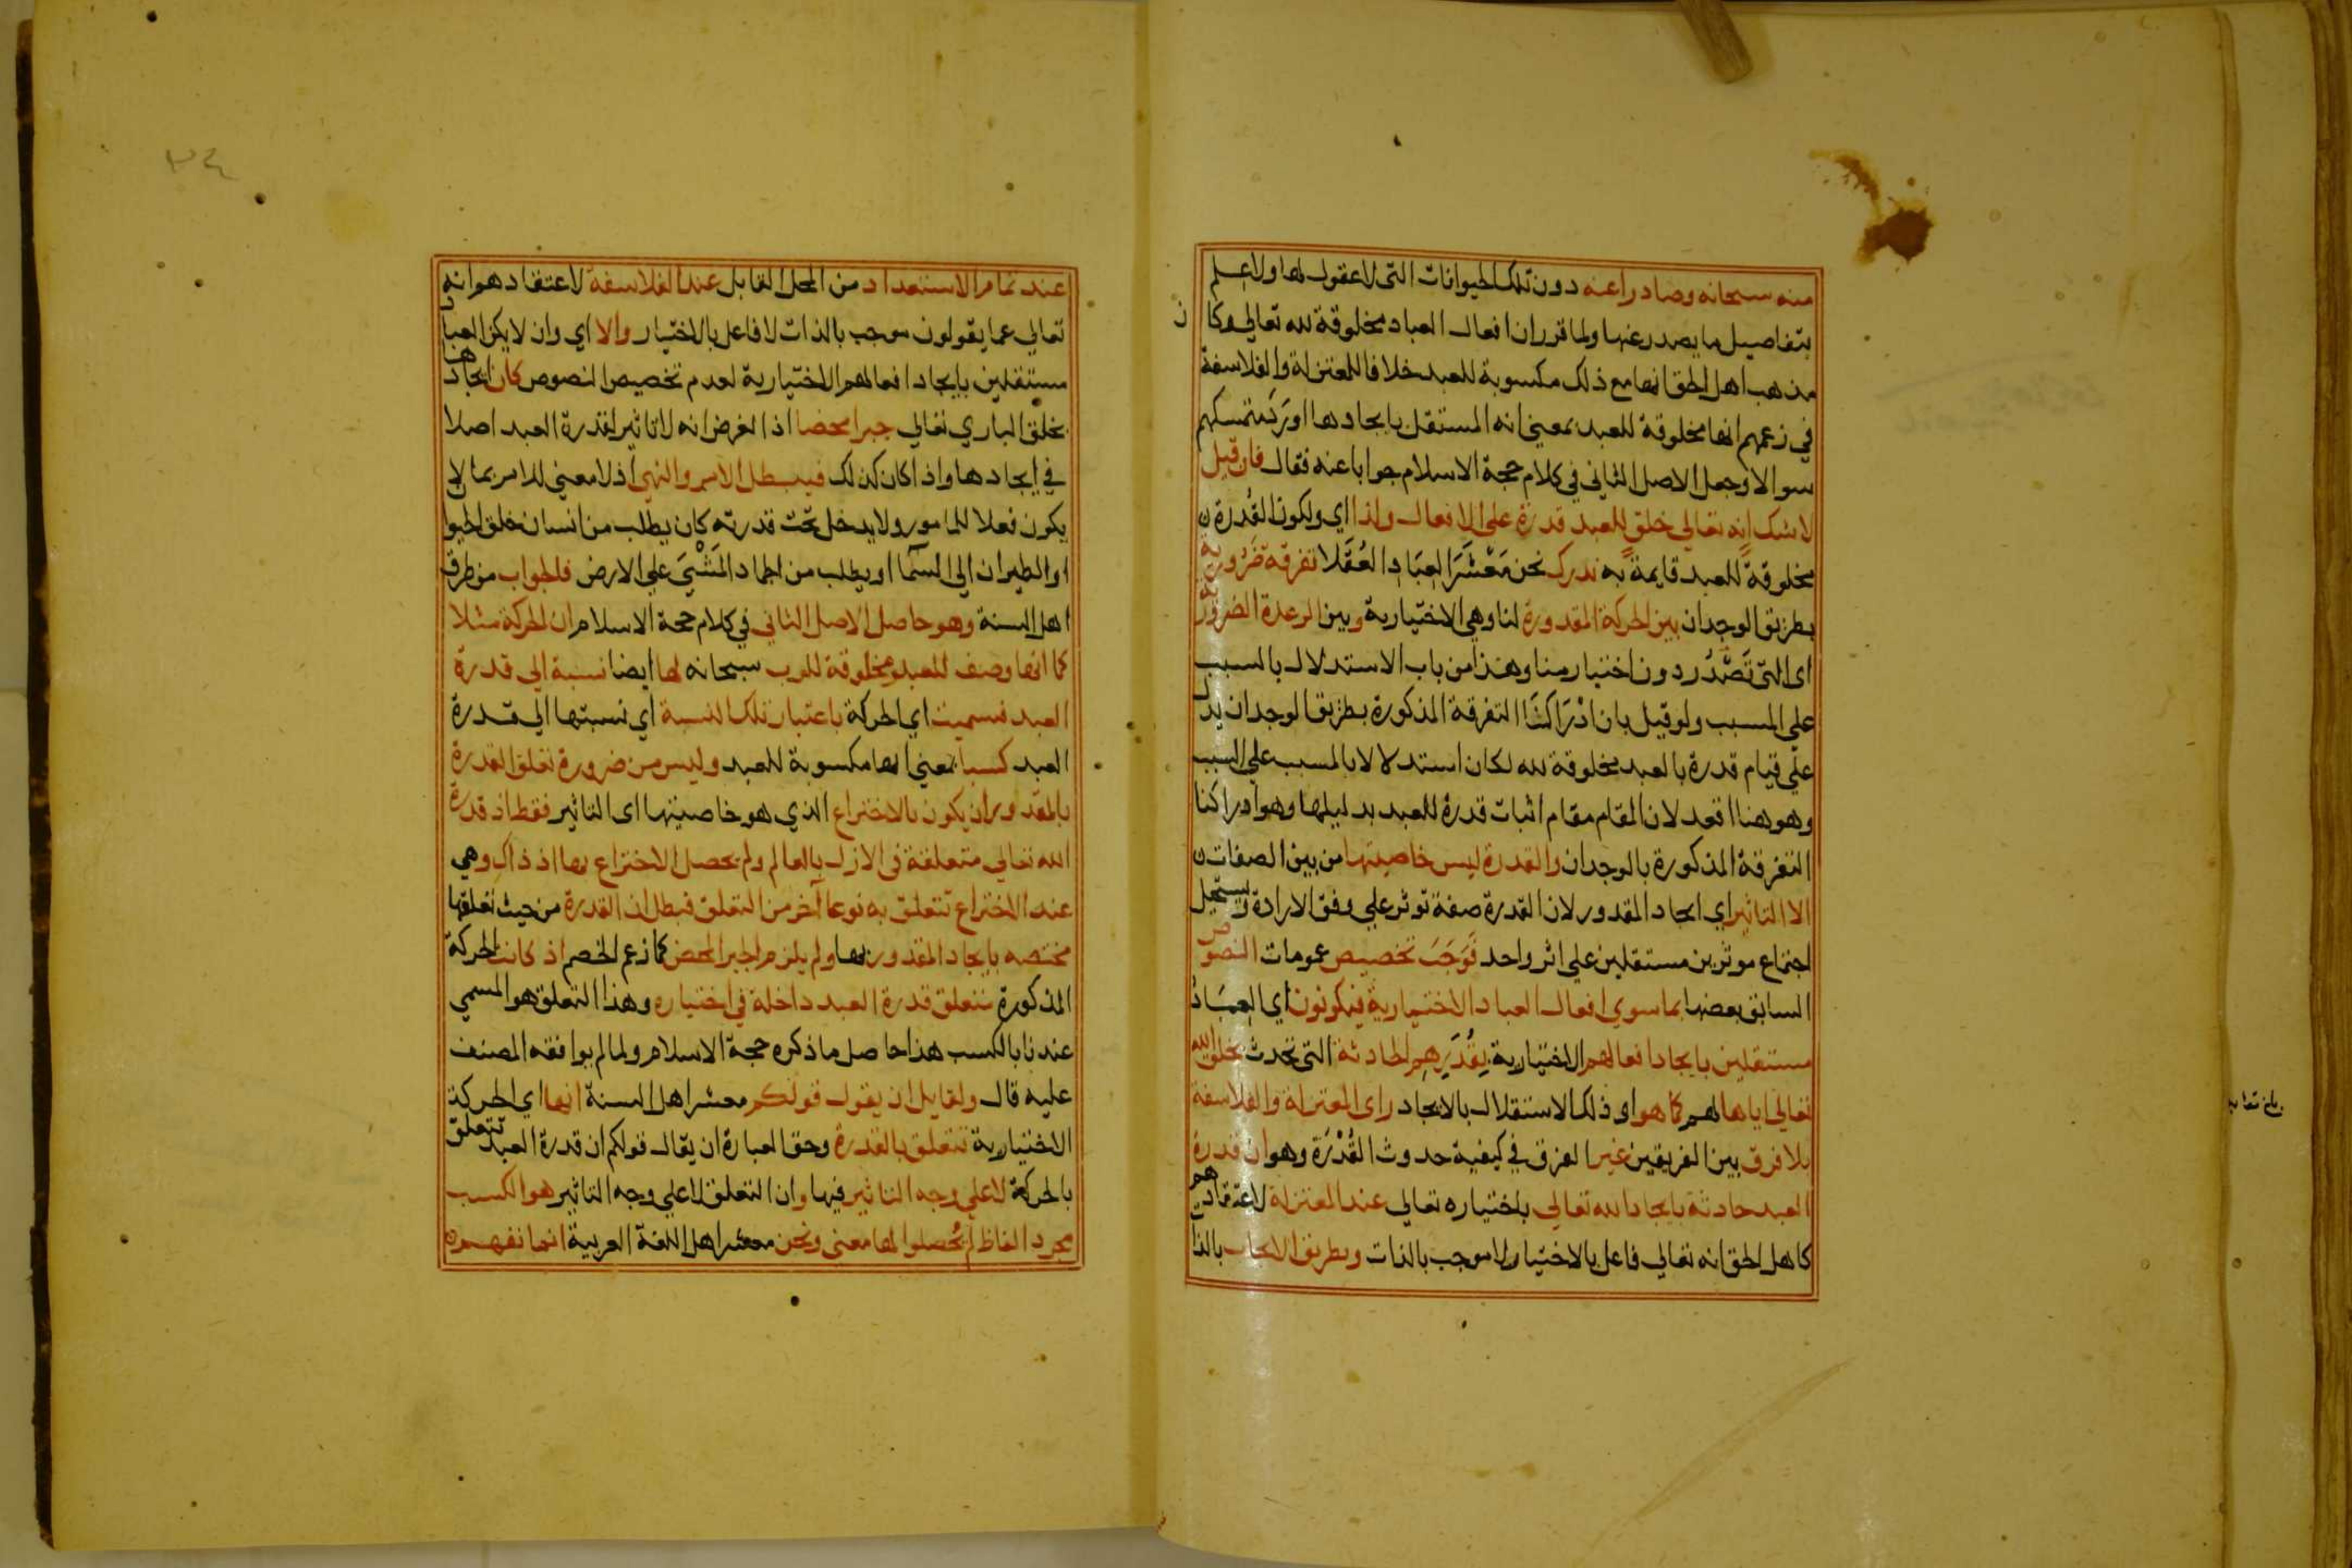 منه سبحانه وصادرا عنه دون تلك الحيوانات التى لا عقول لها ولا علم
بتفاصيل ما يصدر عنها ولما قرر ان افعال العباد مخلوقة لله تعالي وكان
مذهب اهل الحق انها مع ذلك مكسوبة للعبد خلافا للمعتزلة والفلاسفة
في زعمهم انها مخلوقة للعبد بمعني انه المستقل بايجادها اورد تمسكهم
سوالا وجعل الاصل الثاني في كلام حجة الاسلام جوابا عنه فقال فان قيل
لا شك انه تعالي خلق للعبد قدرة على الافعال ولذا اي ولكون القدرة
مخلوقة للعبد قايمة به ندرك نحن معشر العباد العقلا تفرقة ضرورية
بطريق الوجدان بين الحركة المقدورة لنا وهي الاختيارية وبين الرعدة الضرورية
اى التى تصدر دون اختيار منا وهذا من باب الاستدلال بالسبب
على المسبب ولو قيل بان ادراكنا التفرقة المذكورة بطريق الوجدان يدل
على قيام قدرة بالعبد مخلوقة لله لكان استدلالا بالمسبب على السبب
وهو هنا اقعد لان المقام مقام اثبات قدرة للعبد بدليلها وهو ادراكنا
التفرقة المذكورة بالوجدان والقدرة ليس خاصيتها من بين الصفات
الا التاثير اي ايجاد المقدور لان القدرة صفة توثر علي وفق الارادة ويستحيل
اجتماع موثرين مستقلين علي اثر واحد فوجب تخصيص عمومات النصوص
السابق بعضها بما سوي افعال العباد الاختيارية فيكونون اي العباد
مستقلين بايجاد افعالهم الاختيارية بقدرهم الحادثة التى تحدث بخلق الله
تعالي اياها لهم كما هو اي ذلك الاستقلال بالايجاد راى المعتزلة والفلاسفة
بلا فرق بين الفريقين غير الفرق في كيفية حدوث القدرة وهو ان قدرة
العبد حادثة بايجاد الله تعالي باختياره تعالي عند المعتزلة لاعتقادهم
كاهل الحق انه تعالي فاعل بالاختيار لا موجب بالذات وبطريق الايجاب بالذات
عند تمام الاستعداد من المحل القابل عند الفلاسفة لاعتقادهم انه
تعالي عما يقولون موجب بالذات لا فاعل بالاختيار والا اي وان لا يكن العباد
مستقلين بايجاد افعالهم الاختيارية لعدم تخصيص النصوص كان ايجادها
بخلق الباري تعالي جبرا محضا اذ الغرض انه لا تاثير لقدرة العبد اصلا
في ايجادها واذا كان كذلك فيبطل الامر والنهي اذ لا معني للامر بما لا
يكون فعلا للمامور ولا يدخل تحت قدرته كان يطلب من انسان خلق الحيوان
او الطيران الي السما او يطلب من الجماد المشي علي الارض فالجواب من طرف
اهل السنة وهو حاصل الاصل الثاني في كلام حجة الاسلام ان الحركة مثلا
كما انها وصف للعبد ومخلوقة للرب سبحانه لها ايضا نسبة الي قدرة
العبد فسميت اي الحركة باعتبار تلك النسبة اي نسبتها الي قدرة
العبد كسبا بمعني انها مكسوبة للعبد وليس من ضرورة تعلق القدرة
بالمقدور ان يكون بالاختراع الذي هو خاصيتها اى التاثير فقط اذ قدرة
الله تعالي متعلقة فى الازل بالعالم ولم يحصل الاختراع بها اذ ذاك وهي
عند الاختراع تتعلق به نوعا آخر من التعلق فبطل ان القدرة من حيث تعلقها
مختصه بايجاد المقدور بها ولم يلزم الجبر المحض كما زعم الخصم اذ كانت الحركة
المذكورة متعلق قدرة العبد داخلة في اختياره وهذا التعلق هو المسمي
عندنا بالكسب هذا حاصل ما ذكره حجة الاسلام ولما لم يوافقه المصنف
عليه قال ولقايل ان يقول قولكم معشر اهل السنة انها اي الحركة
الاختيارية تتعلق بالقدرة وحق العبارة ان يقال قولكم ان قدرة العبد تتعلق
بالحركة لا علي وجه التاثير فيها وان التعلق لا علي وجه التاثير هو الكسب
مجرد الفاظ لم تحصلوا لها معنى ونحن معشر اهل اللغة العربية انما نفهم